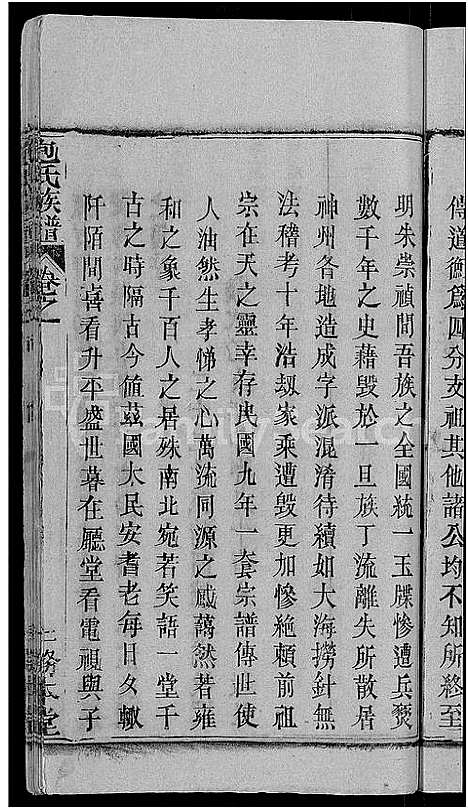 傳道衡爲四分支祖其他諸公均不知所終至
明朱崇禎間吾族之全國統一玉牒慘遭兵燹
數千年之史藉毀於一旦族丁流離失所散居
神州各地造成字派混淆待續如大海撈針無
法稽考十年浩劫家乘遭毀更加慘絶頼前祖
宗在天之靈幸存民國九年一套宗譜傳世使
人油然生孝悌之心萬流同源之感藹然若雍
和之象千百人之居殊南北宛若笑語一堂千
古之時隔古今值茲國太民安耆老每日夕輙
阡陌間喜看升平盛世暮在廳堂看電視與子
包氏族譜
卷之一
本堂
FamilySearch